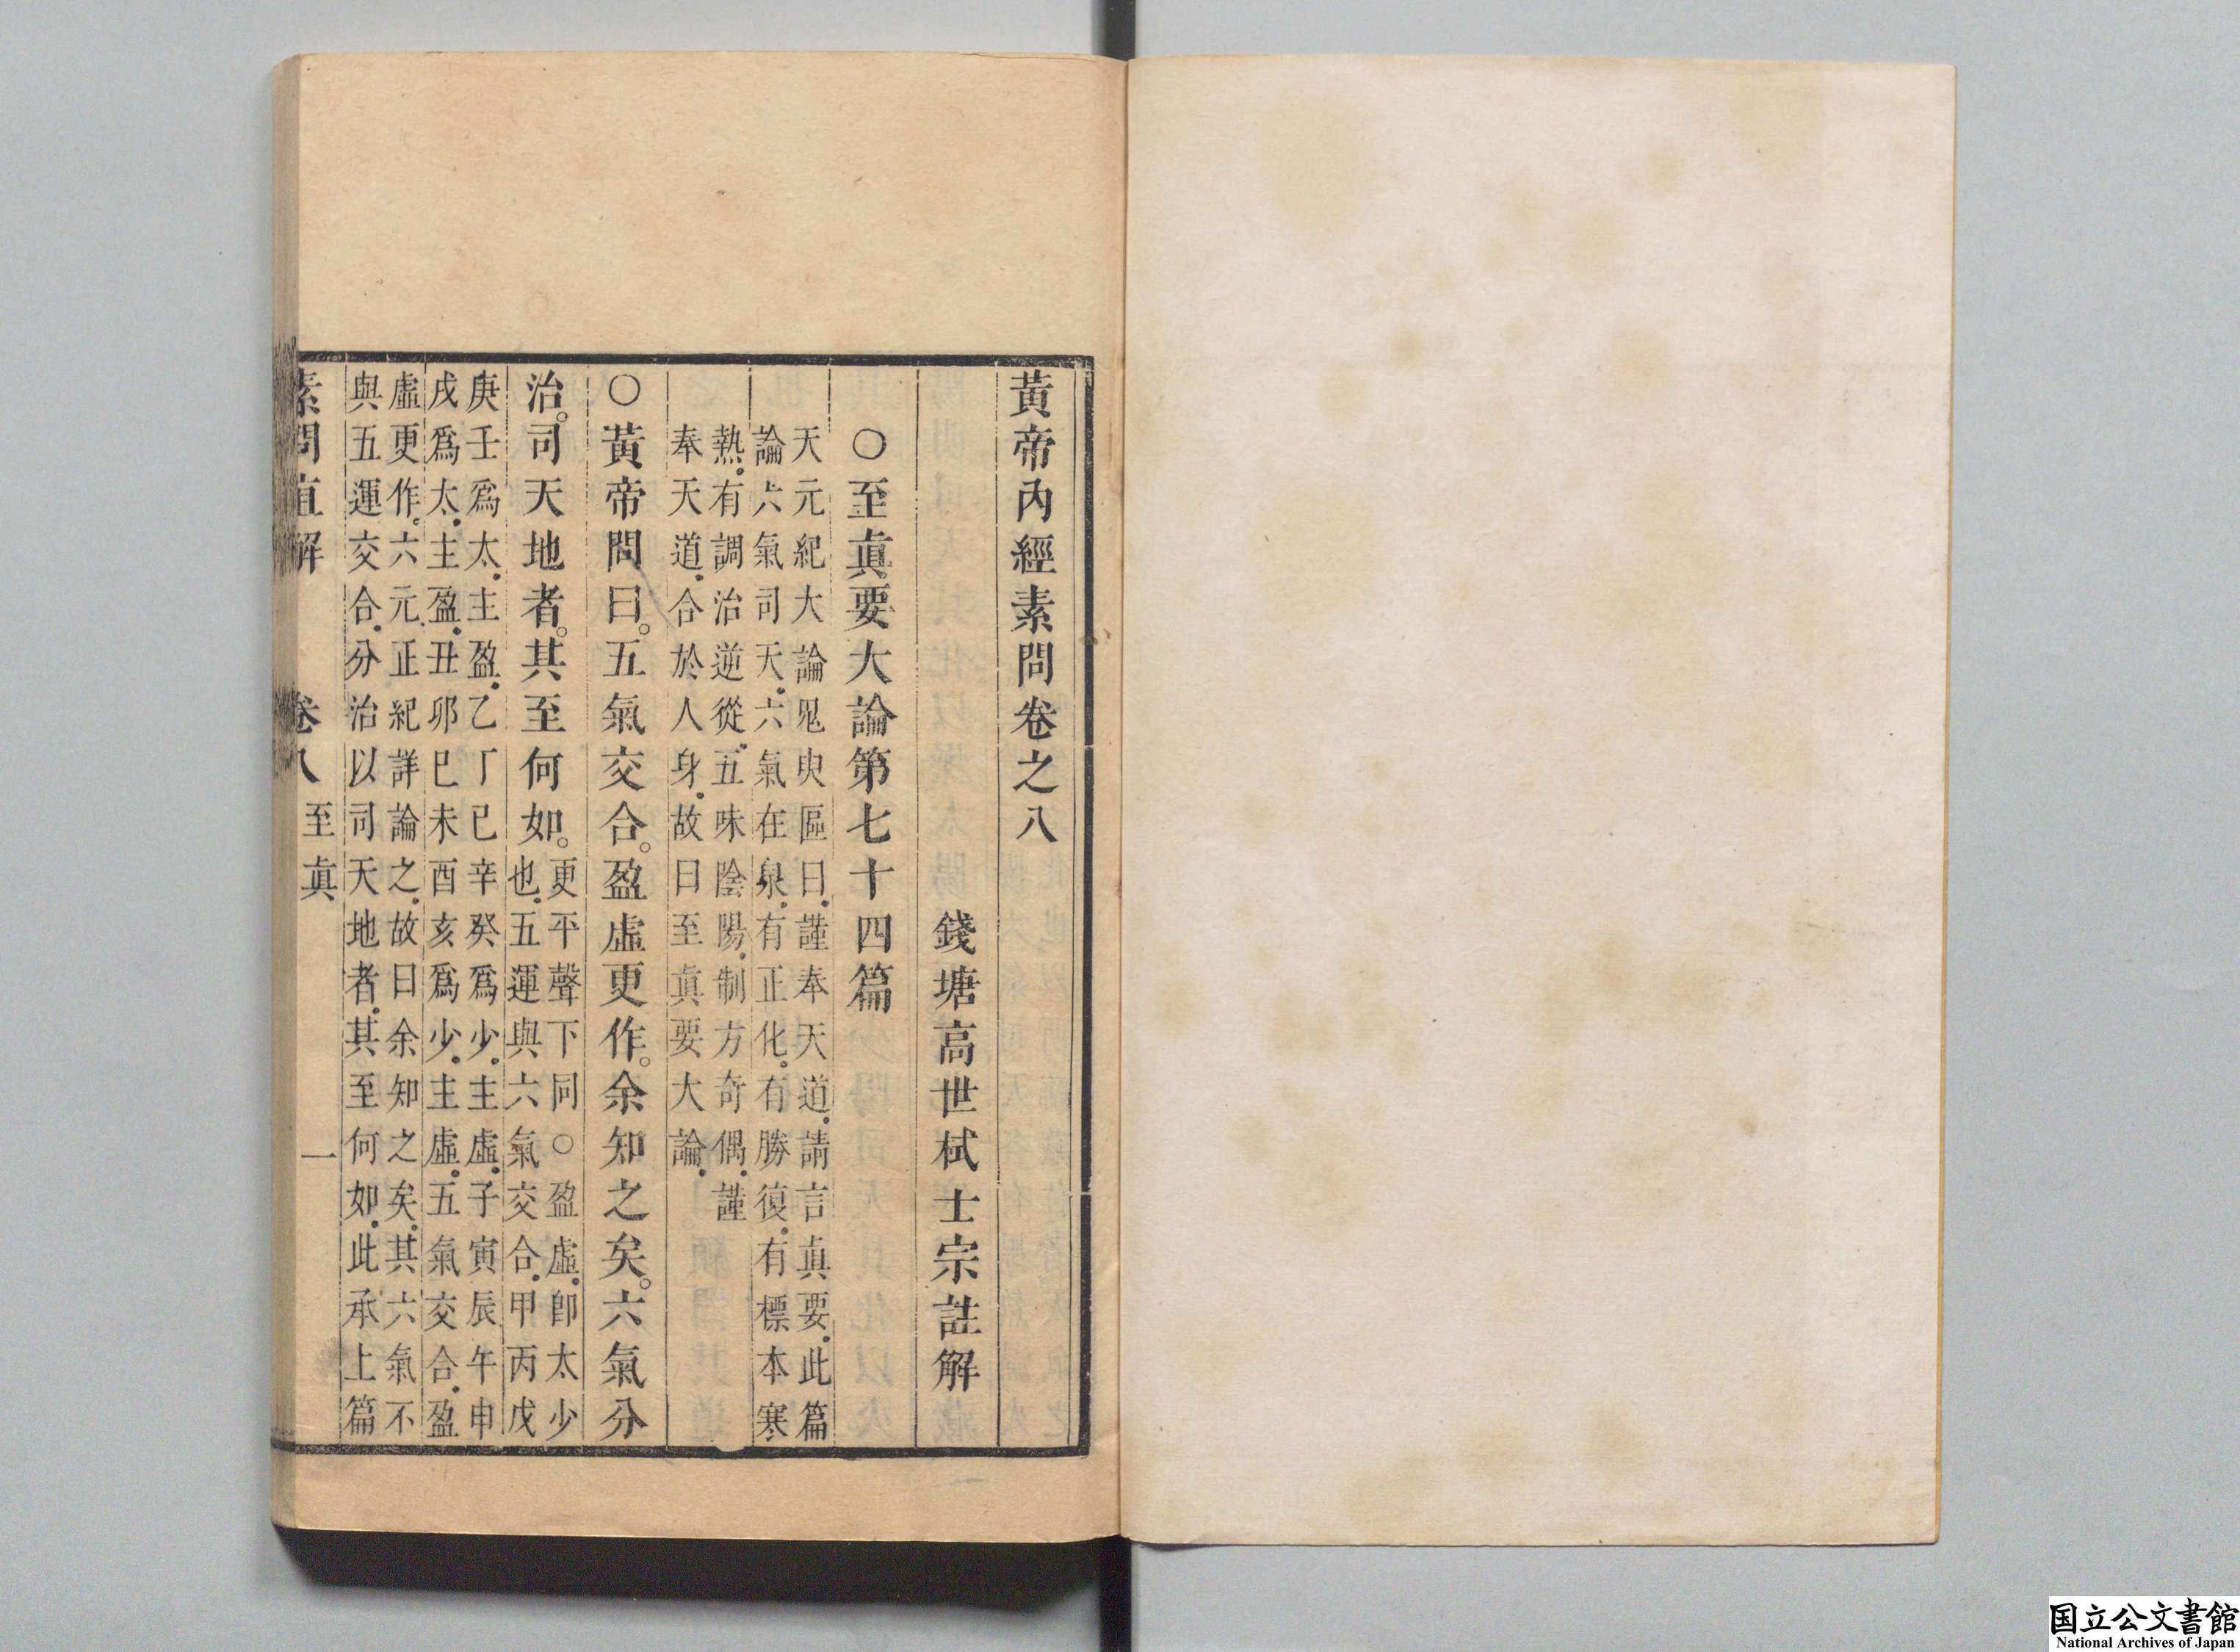 黃帝內經素問卷之八
錢塘高世栻士宗註解
○至眞要大論第七十四篇
天元紀大論鬼臾區曰謹奉天道請言眞要此篇
論六氣司天六氣在泉有正化有勝復有標本寒
熱有調治逆從五味陰陽制方奇偶謹
奉天道合於人身故曰至眞要大論
○黃帝問曰五氣交合盈虛更作余知之矣六氣分
治司天地者其至何如
更平聲下同○盈虛卽太少
也五運與六氣交合甲丙戊
庚壬爲太主盈乙丁己辛癸爲少主虛子寅辰午申
戌爲太主盈丑卯巳未酉亥爲少主虛五氣交合盈
虛更作六元正紀詳論之故曰余知之矣其六氣不
與五運交合分治以司天地者其至何如此承上篇
素問直解 卷八 至眞 一
国立公文書館
National Archives of Japan